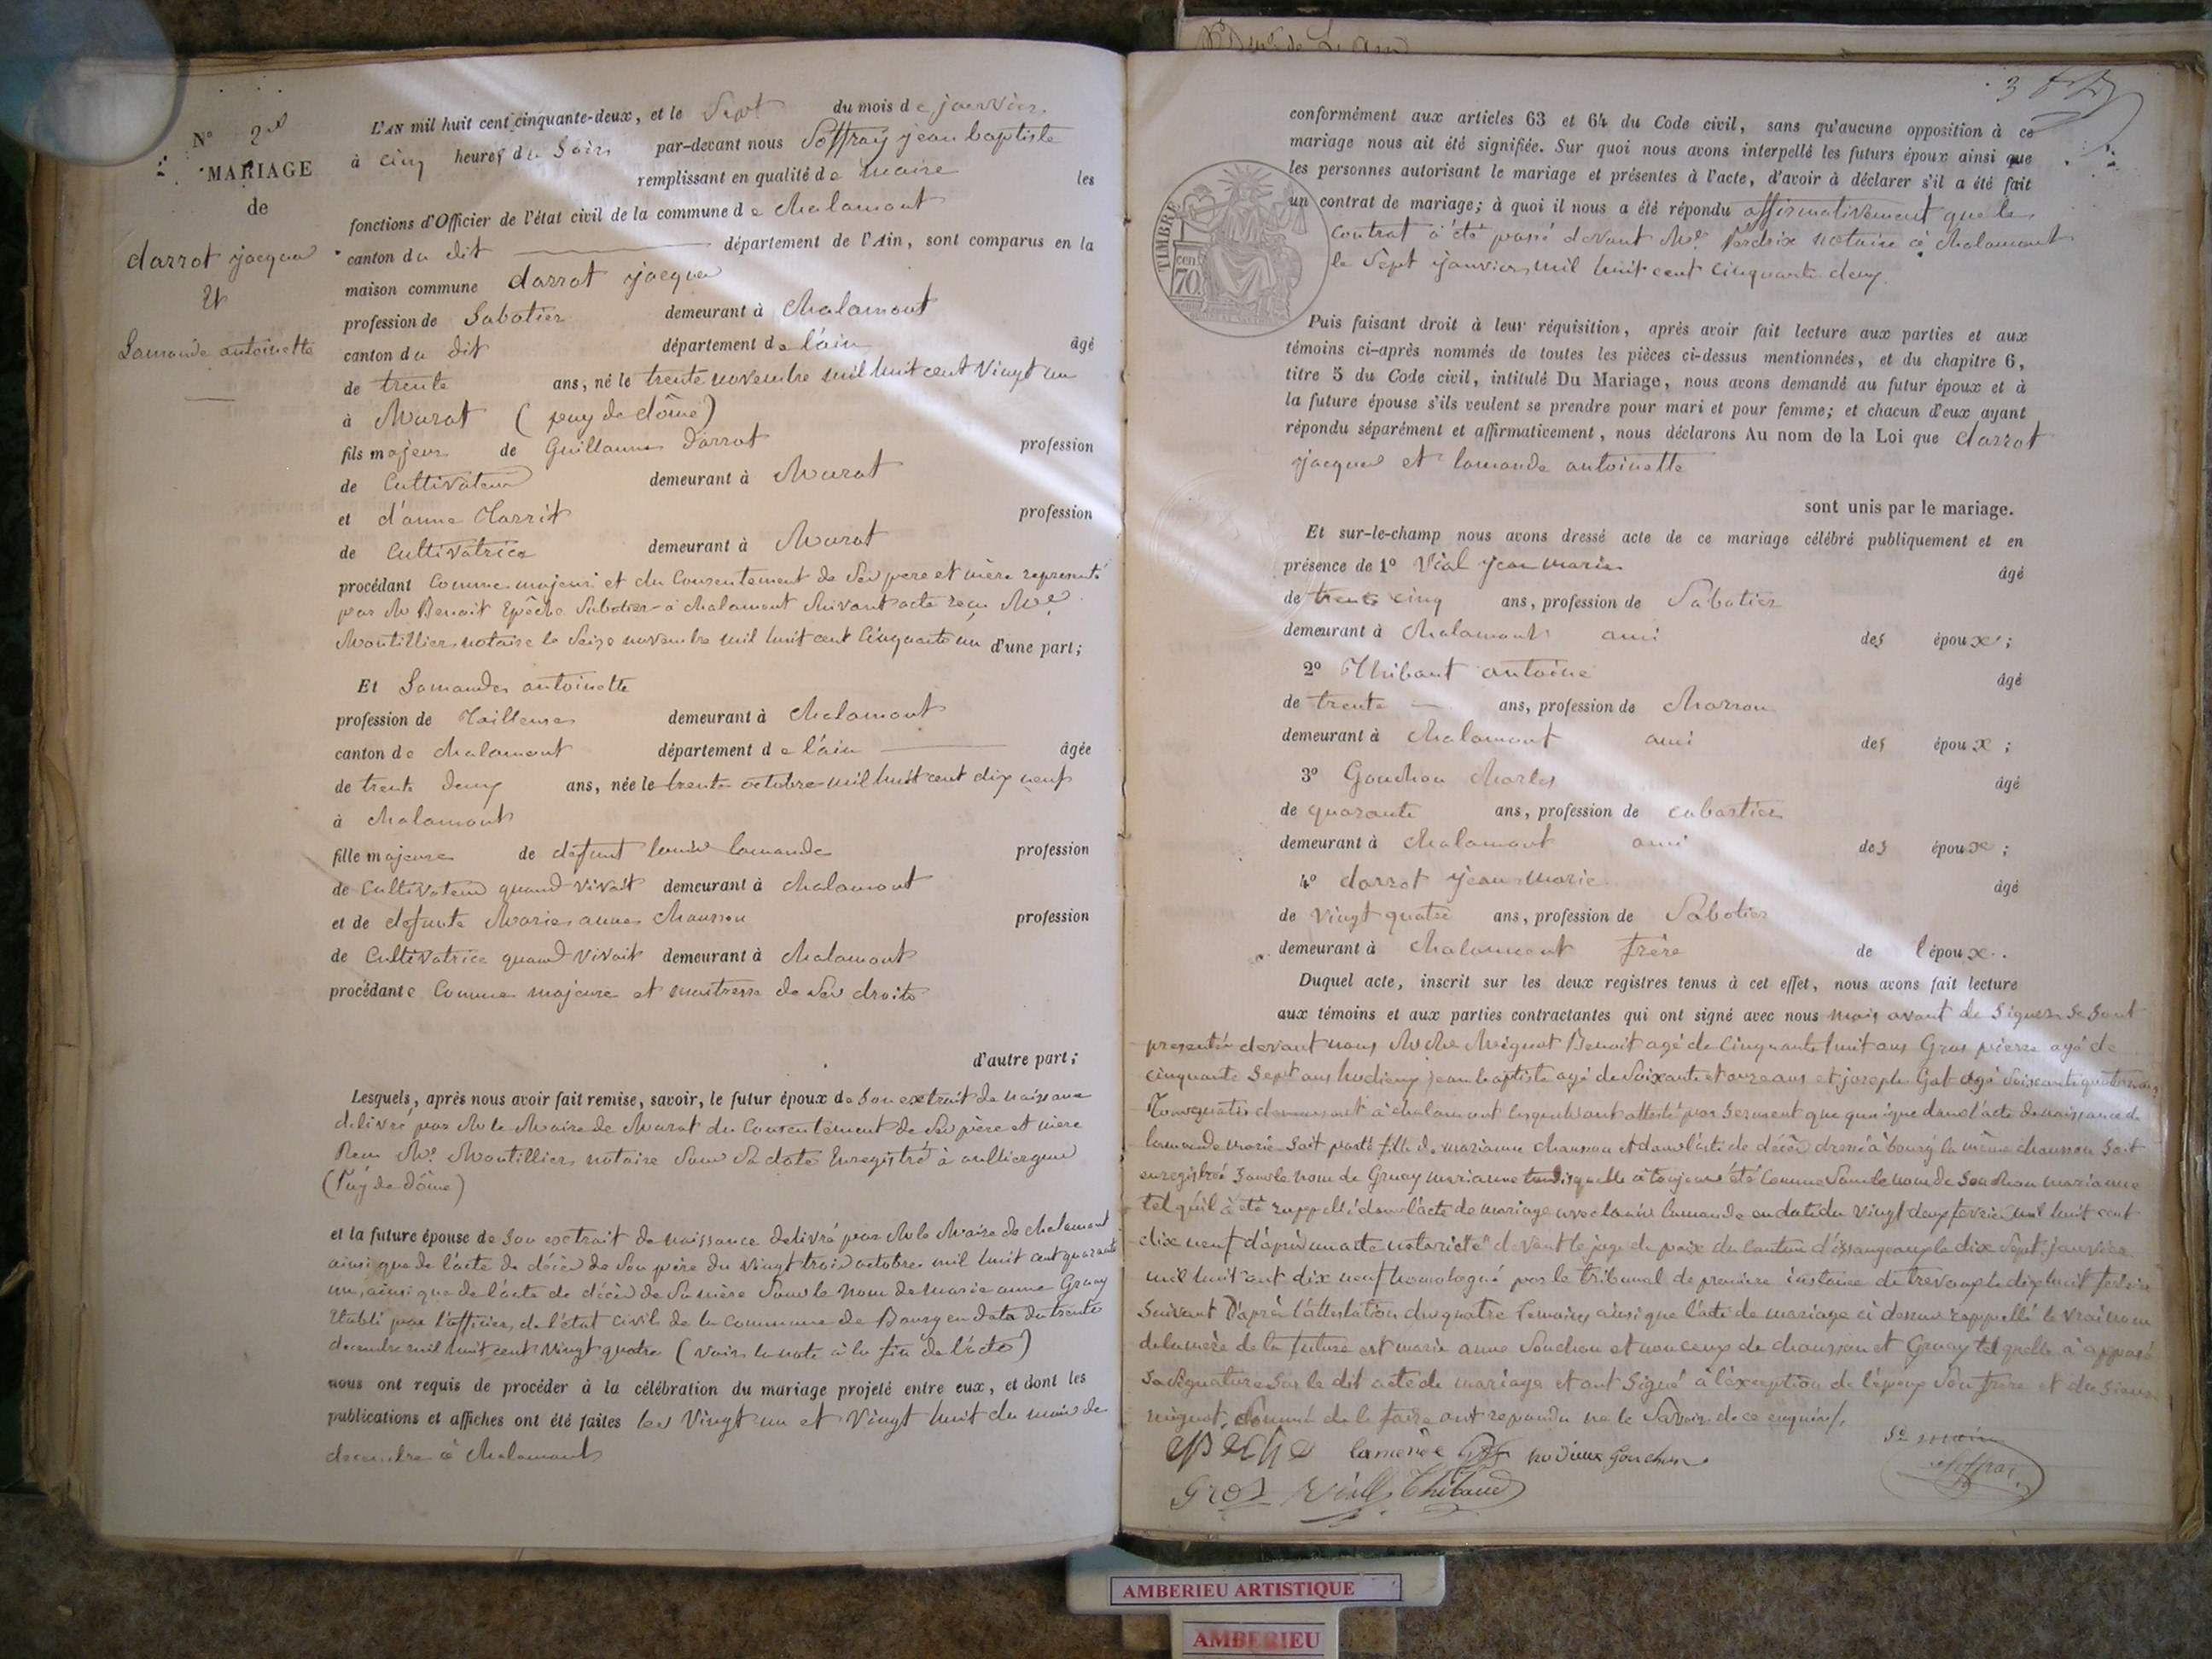 N° 2
MARIAGE
de
darrot jacques
Et
Lamande antoinette
L'AN mil huit cent cinquante-deux, et le Sept du mois de janvier
à cinq heures du Soir par-devant nous Soffray jean baptiste
remplissant en qualité de maire les
fonctions d'Officier de l'état civil de la commune de chalamont
canton du dit département de l'Ain, sont comparus en la
maison commune darrot jacques
profession de Sabotier demeurant à chalamont
canton du dit département de l'ain âgé
de trente ans, né le trente novembre mil huit cent vingt un
à Murat (puy de dôme)
fils majeur de Guillaume darrot profession
de Cultivateur demeurant à Murat
et d'anne profession
de Cultivatrice demeurant à Murat
procédant Comme majeur et du Consentement de Ses pere et mère representé
par Mr Benoit Epêche Sabotier à chalamont Suivant acte reçu Me
Montillier notaire le Seize novembre mil huit cent Cinquante un d'une part;
Et Lamande antoinette
profession de Tailleuse demeurant à chalamont
canton de chalamont département de l'ain âgée
de trente deux ans, née le trente octobre mil huit cent dix neuf
à chalamont
fille majeure de défunt louis lamande profession
de Cultivateur quand vivait demeurant à chalamont
et de defunte Marie anne chausson profession
de Cultivatrice quand vivait demeurant à chalamont
procédante Comme majeure et maitresse de Ses droits
d'autre part;
Lesquels, après nous avoir fait remise, savoir, le futur époux de Son extrait de naissance
delivré par Mr le Maire de Murat du Consentement de Ses père et mère
Reçu Me Montillier notaire Sous Sa date Enregistré à
(Puy de dôme)
et la future épouse de Son extrait de naissance delivré par Mr le Maire de chalamont
ainsi que de l'acte de décès de Son père du vingt trois octobre mil huit cent quarante
un, ainsi que de l'acte de décès de Sa mère Sous le nom de marie anne Gruay
Etabli par l'officier de l'état civil de la Commune de Bourg en date du trente
decembre mil huit cent vingt quatre (voir la note à la fin de l'acte)
nous ont requis de procéder à la célébration du mariage projeté entre eux, et dont les
publications et affiches ont été faites les Vingt un et Vingt huit du mois de
decembre à chalamont
conformément aux articles 63 et 64 du Code civil, sans qu'aucune opposition à ce
mariage nous ait été signifiée. Sur quoi nous avons interpellé les futurs époux ainsi que
les personnes autorisant le mariage et présentes à l'acte, d'avoir à déclarer s'il a été fait
un contrat de mariage; à quoi il nous a été répondu affirmativement que le
contrat à été passé devant Me Perdrix notaire à chalamont
le Sept janvier mil huit cent cinquante deux
TIMBRE
70 cen
Puis faisant droit à leur réquisition, après avoir fait lecture aux parties et aux
témoins ci-après nommés de toutes les pièces ci-dessus mentionnées, et du chapitre 6,
titre 5 du Code civil, intitulé Du Mariage, nous avons demandé au futur époux et à
la future épouse s'ils veulent se prendre pour mari et pour femme; et chacun d'eux ayant
répondu séparément et affirmativement, nous déclarons Au nom de la Loi que darrot
jacques et lamande antoinette
sont unis par le mariage.
Et sur-le-champ nous avons dressé acte de ce mariage célébré publiquement et en
présence de 1° Vial jean marie âgé
de trente cinq ans, profession de Sabotier
demeurant à chalamont ami des époux;
2° Thibaut antoine âgé
de trente ans, profession de
demeurant à chalamont ami des époux;
3° Gonchon charles âgé
de quarante ans, profession de cabartier
demeurant à chalamont ami des époux;
4° darrot jean marie âgé
de Vingt quatre ans, profession de Sabotier
demeurant à chalamont frère de l'époux.
Duquel acte, inscrit sur les deux registres tenus à cet effet, nous avons fait lecture
aux témoins et aux parties contractantes qui ont signé avec nous mais avant de Signer Se Sont
presentés devant nous Mignot Benoit agé de Cinquante huit ans Gros pierre agé de
cinquante Sept ans jean baptiste agé de Soixante et onze ans et joseph Gat agé Soixante quatorze ans
Tous quatre demeurant à chalamont lesquels ont attesté par Serment que quoique dans l'acte de naissance de
lamande Soit porté fille de marianne chausson et dans l'acte de décès dressé à bourg la même chausson Soit
enregistrée Sous le nom de Gruay marianne tandis quelle à toujours été Connue Sous le nom de Souchon marianne
tel quil à été rappellé dans l'acte de mariage avec louis lamande en date du vingt deux fevrier mil huit cent
dix neuf d'après un acte notorieté devant le juge de paix du Canton le dix Sept janvier
mil huit cent dix neuf homologué par le tribunal de premiere instance de trevoux le dix huit fevrier
Suivant D'après l'attestation des quatre temoins ainsi que l'acte de mariage ci dessus rappellé le vrai nom
de la mère de la future est marie anne Souchon et non ceux de chausson et Gruay tel quelle à apposé
Sa Signature Sur le dit acte de mariage et ont Signé à l'exception de l'époux Son frère et du Sieur
mignot Sommé de le faire ont repondu ne le Savoir de ce enquis
lamende Gat Gonchon
Gros Viall Thibaud
AMBERIEU ARTISTIQUE
AMBERIEU